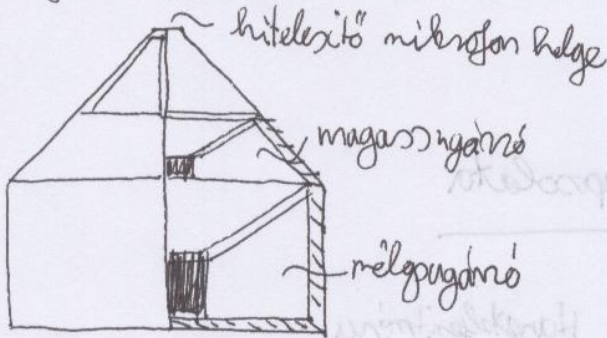 hitelesítő mikrofon helye
magassugárzó
mélysugárzó